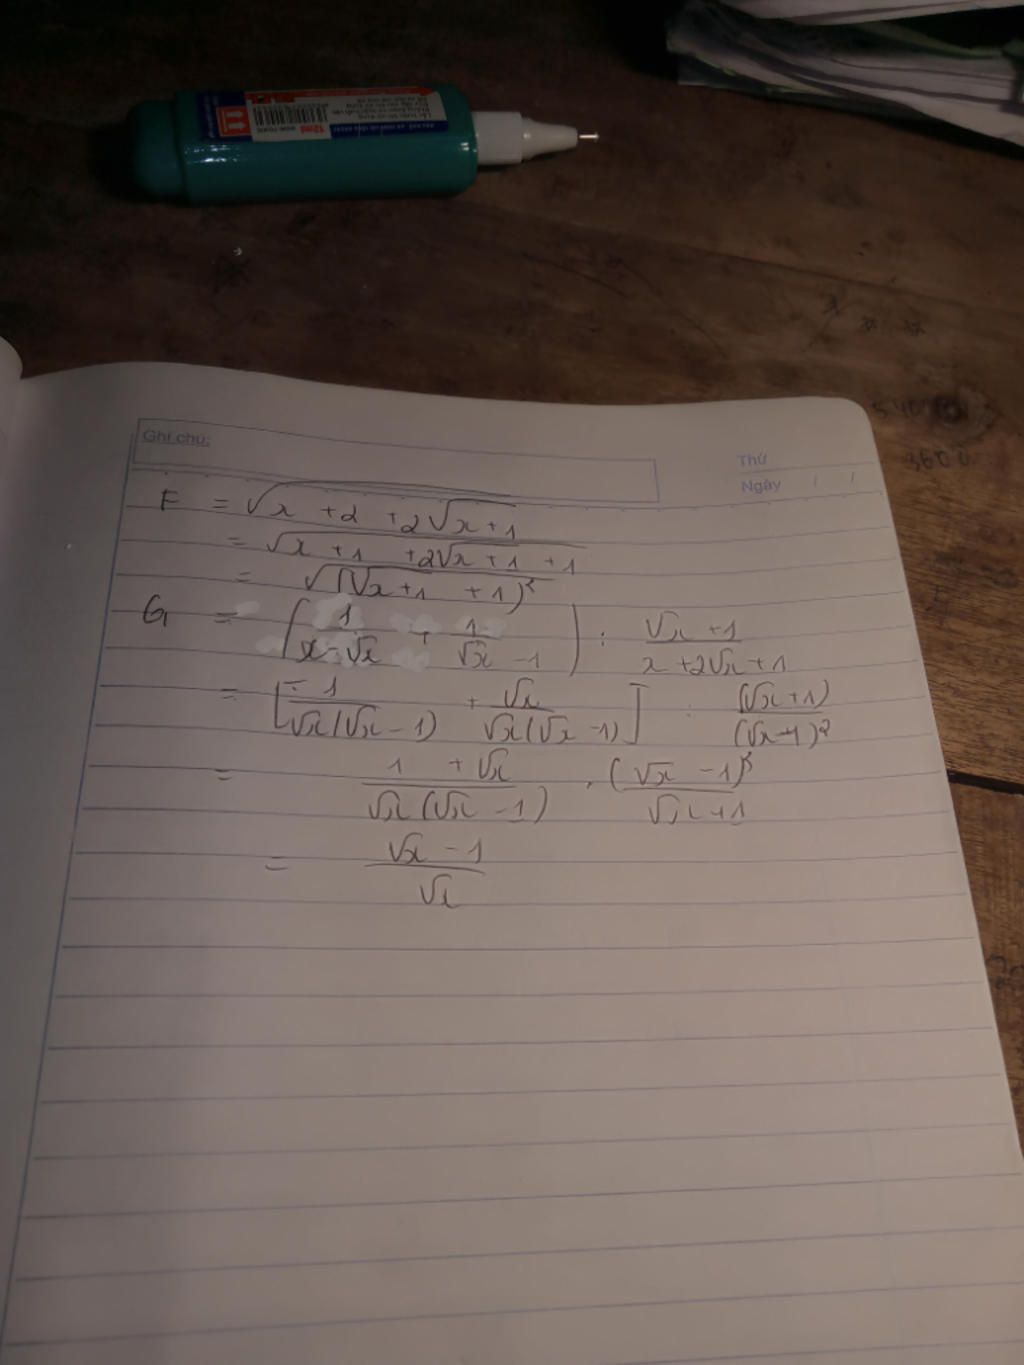 12ml
Ghi chú:
Thứ
Ngày / /
F = √(x + 2 + 2√(x + 1))
= √(x + 1 + 2√(x + 1) + 1)
= √((√(x + 1) + 1)²)
G = (1/(x - √x) + 1/(√x - 1)) : (√x + 1)/(x + 2√x + 1)
= [1/(√x(√x - 1)) + √x/(√x(√x - 1))] : (√x + 1)/(√x - 1)²
= (1 + √x)/(√x(√x - 1)) . (√x - 1)²/(√x + 1)
= (√x - 1)/√x